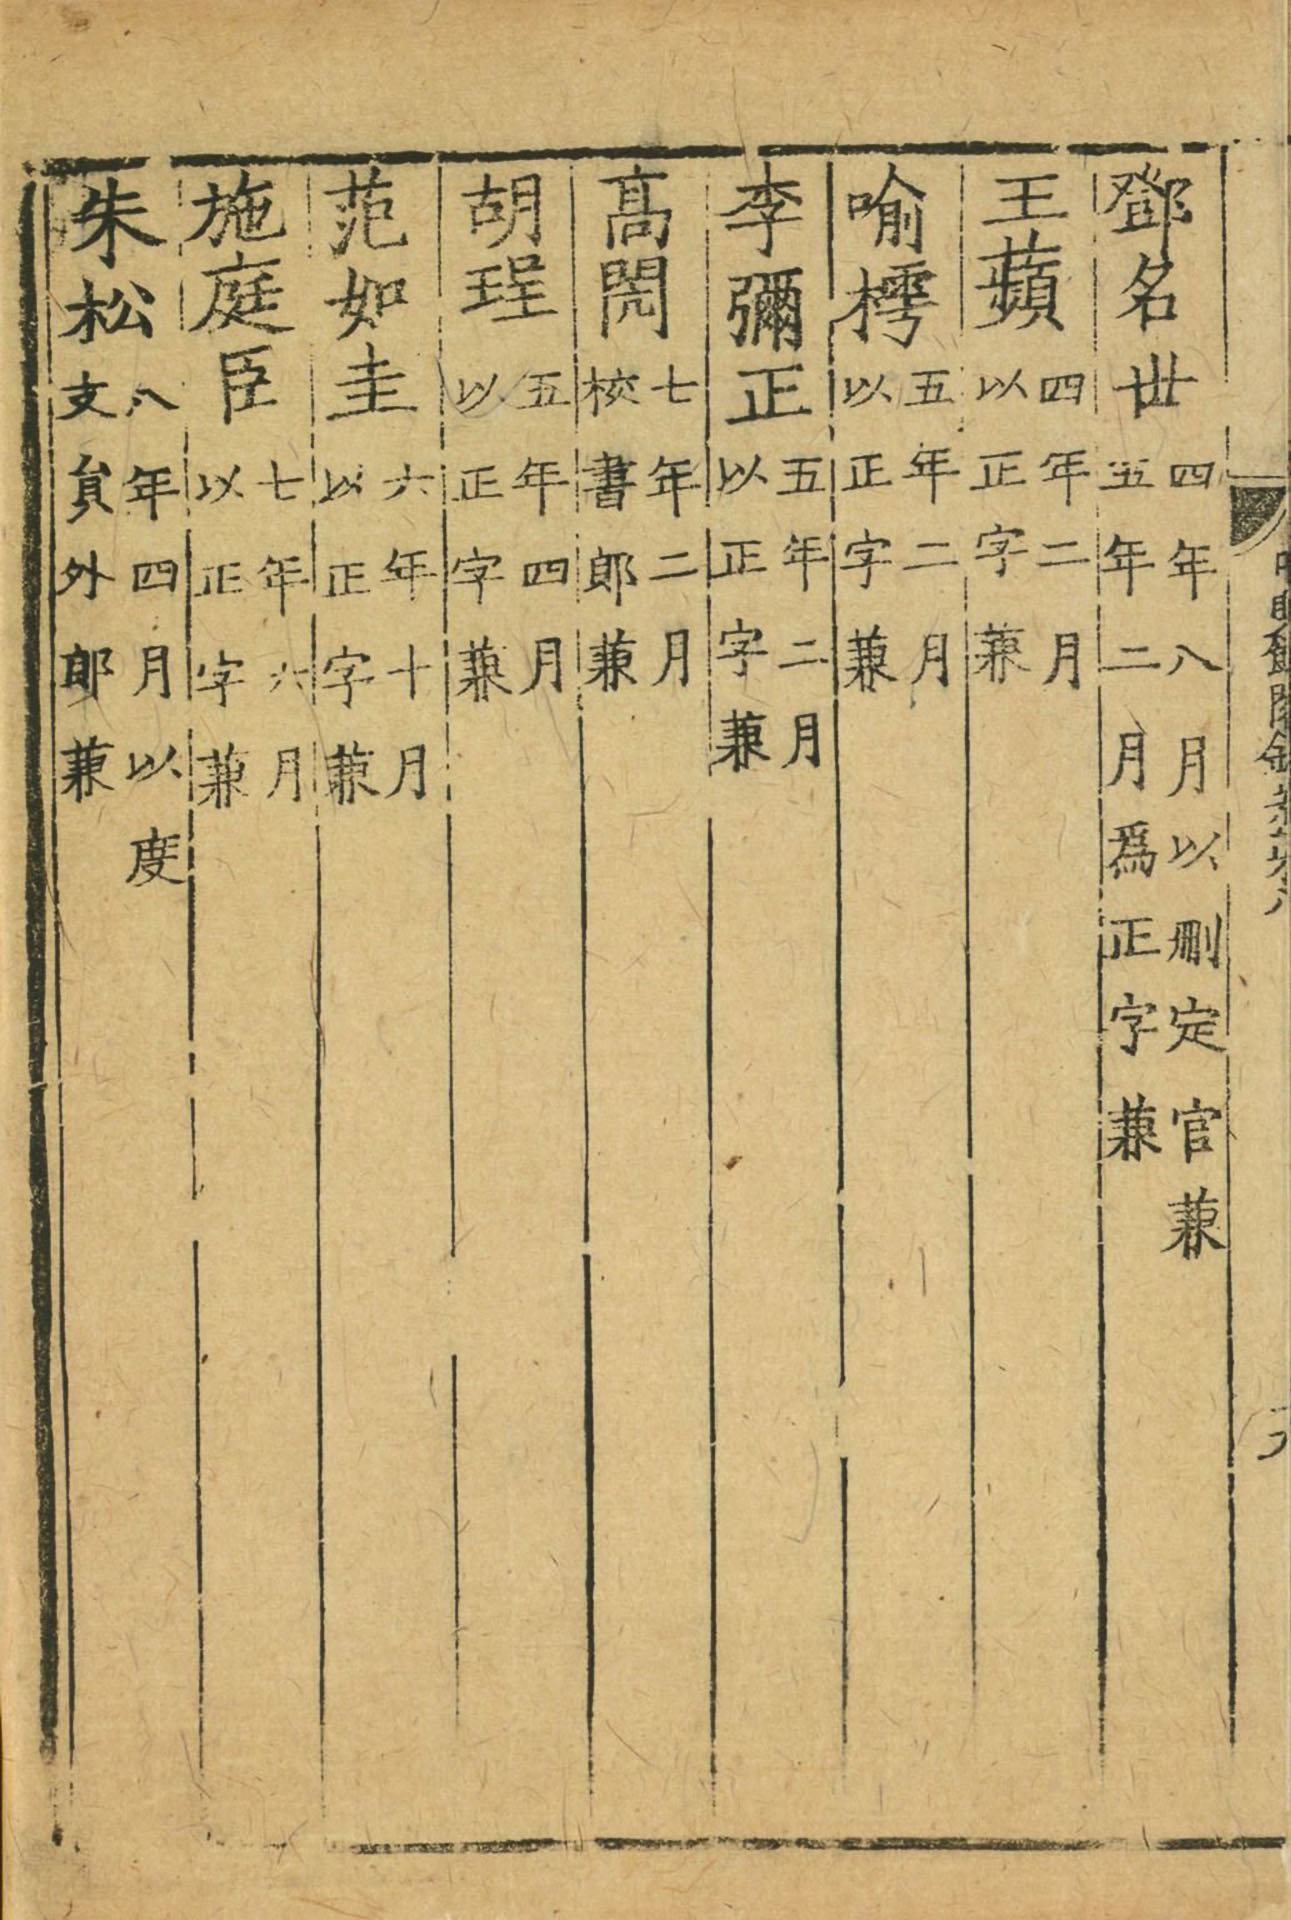 鄧名世四年八月以刪定官兼五年二月爲正字兼
王蘋四年二月以正字兼
喻樗五年二月以正字兼
李彌正五年二月以正字兼
髙閌七年二月校書郎兼
胡珵五年四月以正字兼
范如圭六年十月以正字兼
施庭臣七年六月以正字兼
朱松八年四月以度支員外郎兼